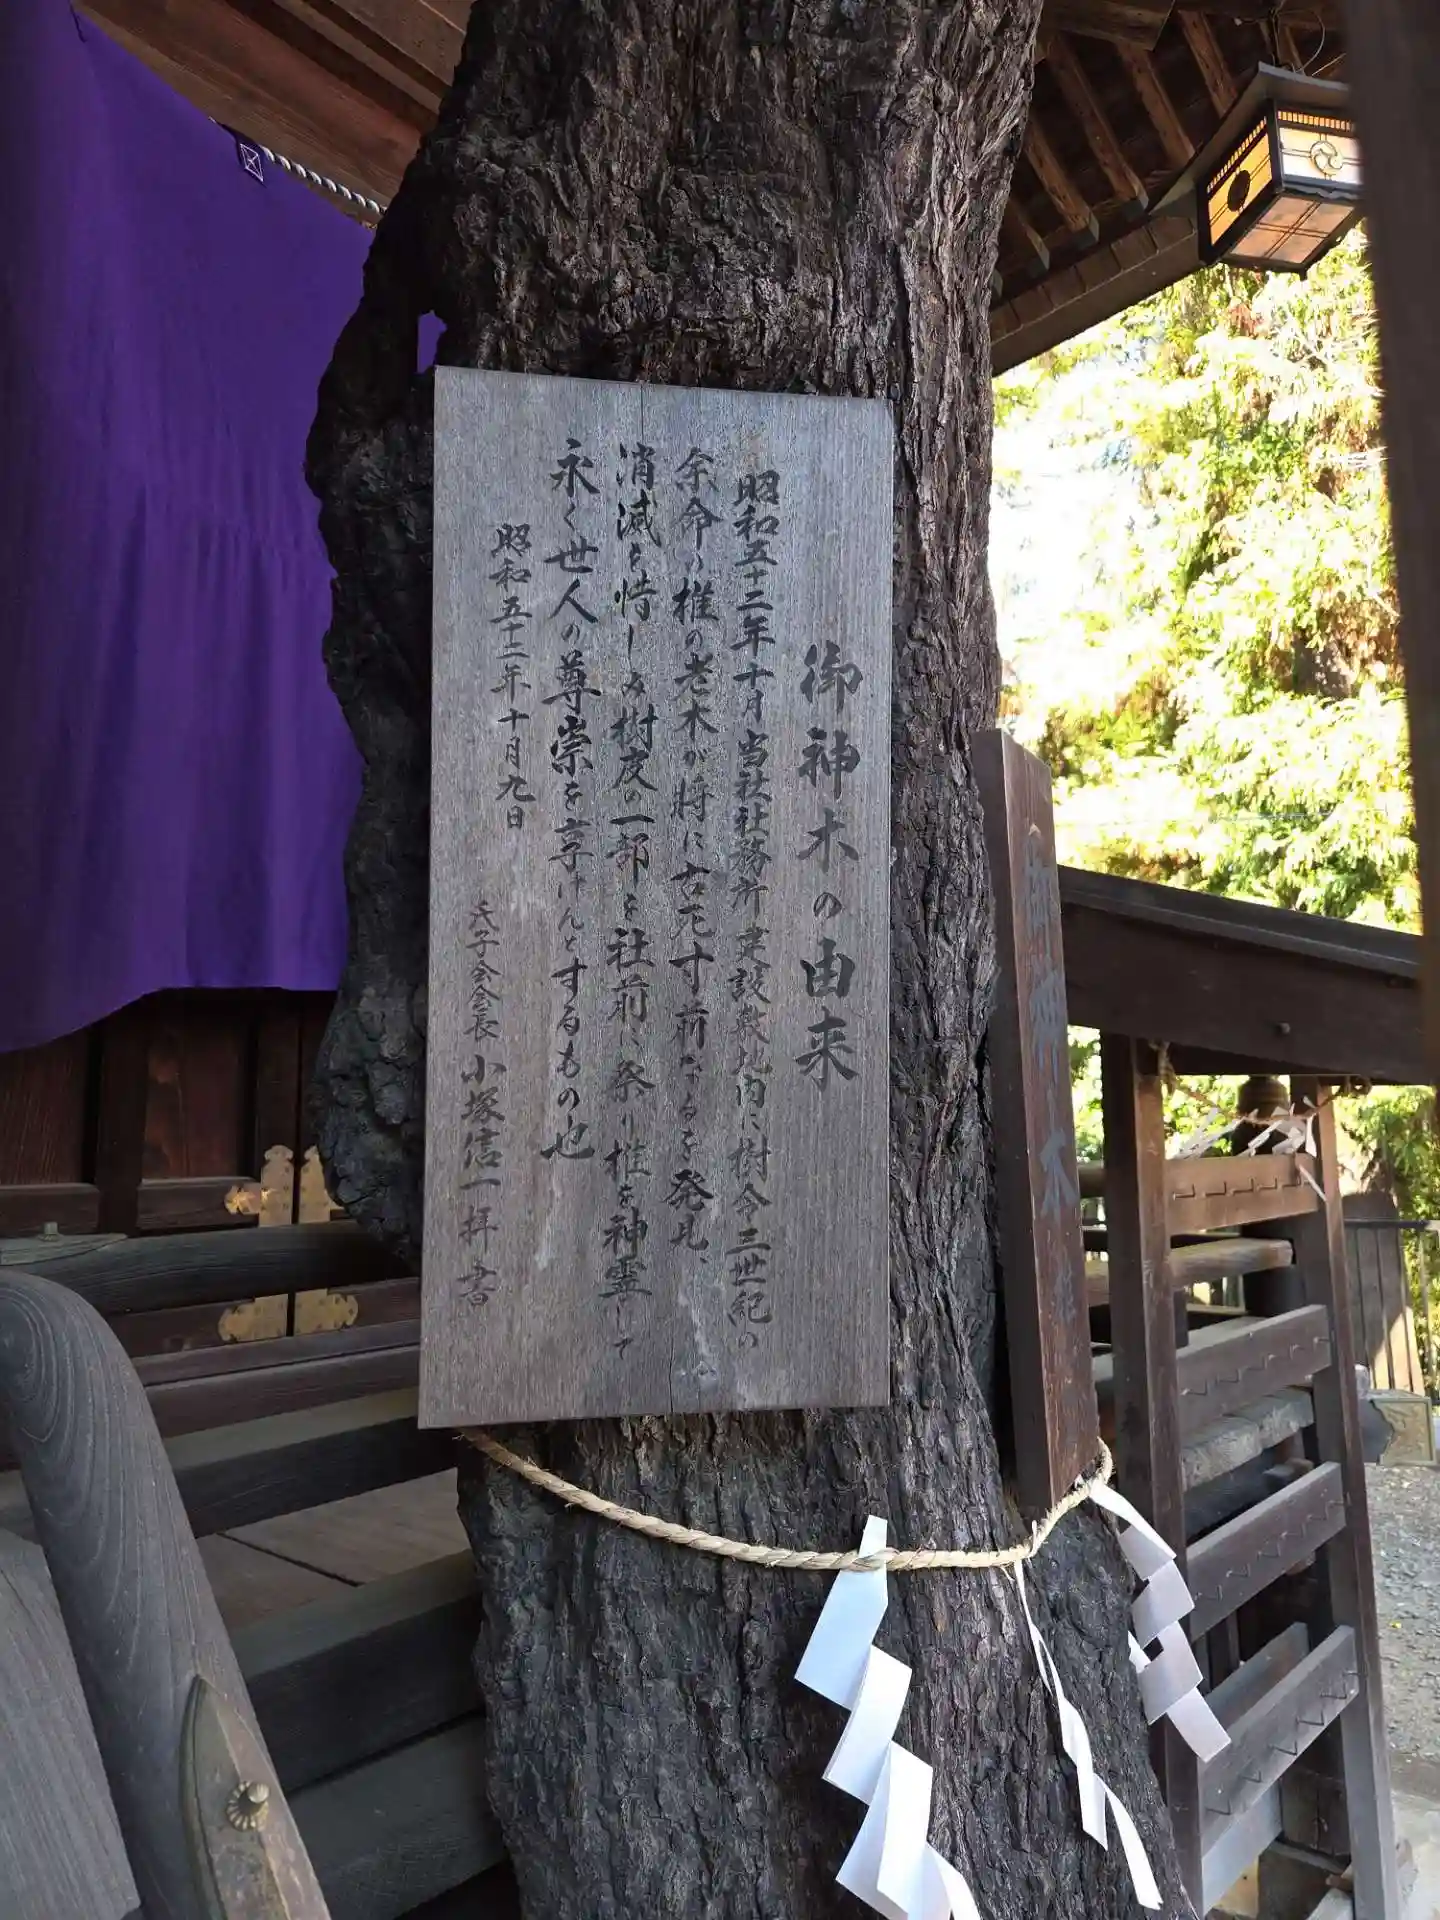 御神木の由来
昭和五十二年十月当社社務所建設敷地内に樹令三世紀の
余命の椎の老木が将に古死寸前なるを発見、
消滅を惜しみ樹皮の一部を社前に祭り椎を神霊して
永く世人の尊崇を享けんとするもの也
昭和五十二年十月九日
氏子会会長 小塚信一拝書
御神木